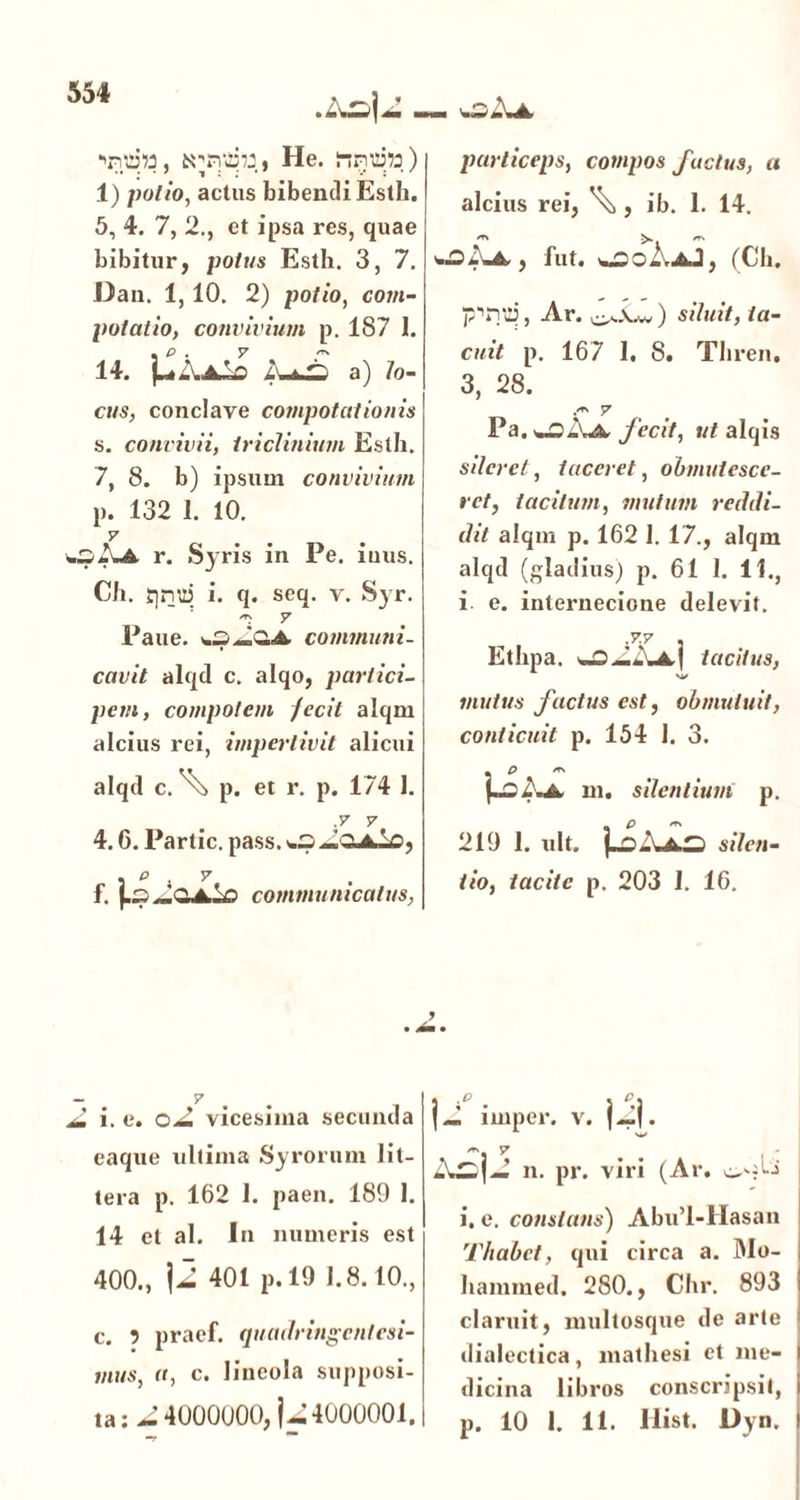 554
ܫܬܦ — ܬܐܒܬ.
מַשְׁתֵּי, מַשְׁתְּיָא, He. מִשְׁתֶּה)
1) potio, actus bibendi Esth.
5, 4. 7, 2., et ipsa res, quae
bibitur, potus Esth. 3, 7.
Dan. 1, 10. 2) potio, com-
potatio, convivium p. 187 l.
14. ܒܝܬ ܡܫܬܝܐ a) lo-
cus, conclave compotationis
s. convivii, triclinium Esth.
7, 8. b) ipsum convivium
p. 132 l. 10.
ܫܬܦ r. Syris in Pe. inus.
Ch. שְׁתַף i. q. seq. v. Syr.
Paue. ܫܘܬܦ communi-
cavit alqd c. alqo, partici-
pem, compotem fecit alqm
alcius rei, impertivit alicui
alqd c. ܠ p. et r. p. 174 l.
4. 6. Partic. pass. ܡܫܘܬܦ,
f. ܡܫܘܬܦܐ communicatus,
particeps, compos factus, a
alcius rei, ܠ, ib. l. 14.
ܫܬܩ, fut. ܢܫܬܘܩ, (Ch.
שְׁתִיק, Ar. سَكَتَ) siluit, ta-
cuit p. 167 l. 8. Thren.
3, 28.
Pa. ܫܬܩ fecit, ut alqis
sileret, taceret, obmutesce-
ret, tacitum, mutum reddi-
dit alqm p. 162 l. 17., alqm
alqd (gladius) p. 61 l. 11.,
i. e. internecione delevit.
Ethpa. ܐܫܬܬܩ tacitus,
mutus factus est, obmutuit,
conticuit p. 154 l. 3.
ܫܬܩܐ m. silentium p.
219 l. ult. ܒܫܬܩܐ silen-
tio, tacite p. 203 l. 16.
.ܬ.
ܬ i. e. ܬܘ vicesima secunda
eaque ultima Syrorum lit-
tera p. 162 l. paen. 189 l.
14 et al. In numeris est
400., ܬܐ 401 p. 19 l. 8. 10.,
c. ܕ praef. quadringentesi-
mus, a, c. lineola supposi-
ta: ܬ 4000000, ܬܐ 4000001.
ܬܐ imper. v. ܐܬܐ.
ܬܐܒܬ n. pr. viri (Ar. ثابت
i. e. constans) Abu'l-Hasan
Thabet, qui circa a. Mo-
hammed. 280., Chr. 893
claruit, multosque de arte
dialectica, mathesi et me-
dicina libros conscripsit,
p. 10 l. 11. Hist. Dyn.